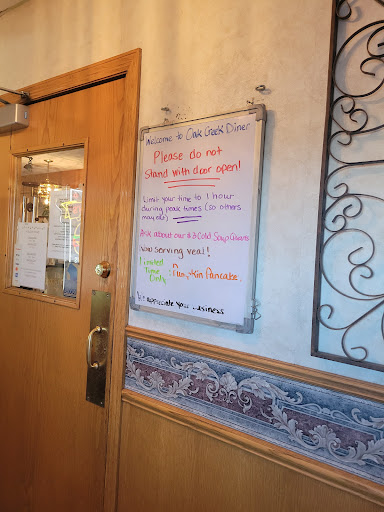 Welcome to Oak Creek Diner
Please do not
stand with door open!
Limit your time to 1 hour
during peak times (so others
may eat)
Ask about our $3 Cold Soup
Now serving veal!
Limited
Time
Only
Pancake
We appreciate your